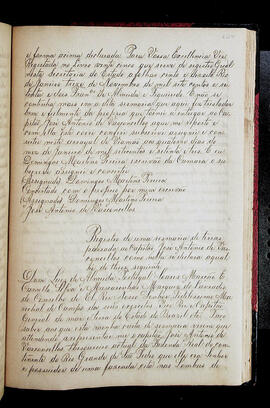 e forma acima declarada. Para Vossa Excellencia Ver
Registada no Livro quinto que serve de registro Geral
nesta Secretaria do Estado a folhas cento e Brazil Rio
de Janeiro treze de Novembro de mil sete centos e se
tenta e seis Fran.co de Almeida e Figueiredo E não se
continha mais em a dita sismaria que aqui fiz trasladar
bem e fielmente da propria que tornei a entregar ao Ca
pitão José Antonio de Vasconcellos aqui me reporto e
com ella este corri conferi subscrevi assignei e con
sertei nesta
mez de Janeiro de mil setecentos e setenta e sete Eu
Domingos Martins Pereira escrivão da Camara o su
bscrevi assignei e conferi
Assignado Domingos Martins Pereira
Consertado com o proprio por mim escrivão
Assignado Domingos Martins Pereira
José Antonio de Vasconcellos
Registro de uma sesmaria de terras
do Capitão José Antonio de Vas
concellos como nella se declara aqual
he de theor seguinte
Dom Luiz de Almeida Portugal Soares Alarcão E
Mello e Mascarenhas Marquez do Lavradio
do Conselho de El Rei Nosso Senhor Fidelissimo Mare
chal de Campo dos seus exercitos Vice Rei e Capitão
General de mar e terra do Estado do Brazil etc Faço
saber aos que esta minha carta de sesmaria virem que
attendendo a representar me o capitão José Antonio de
Vasconcellos Thesoureiro actual da Fazenda Real do con
tinente do Rio Grande de São Pedro que elle era senhor
e possuidor de uma fazenda sita nas Lombas de